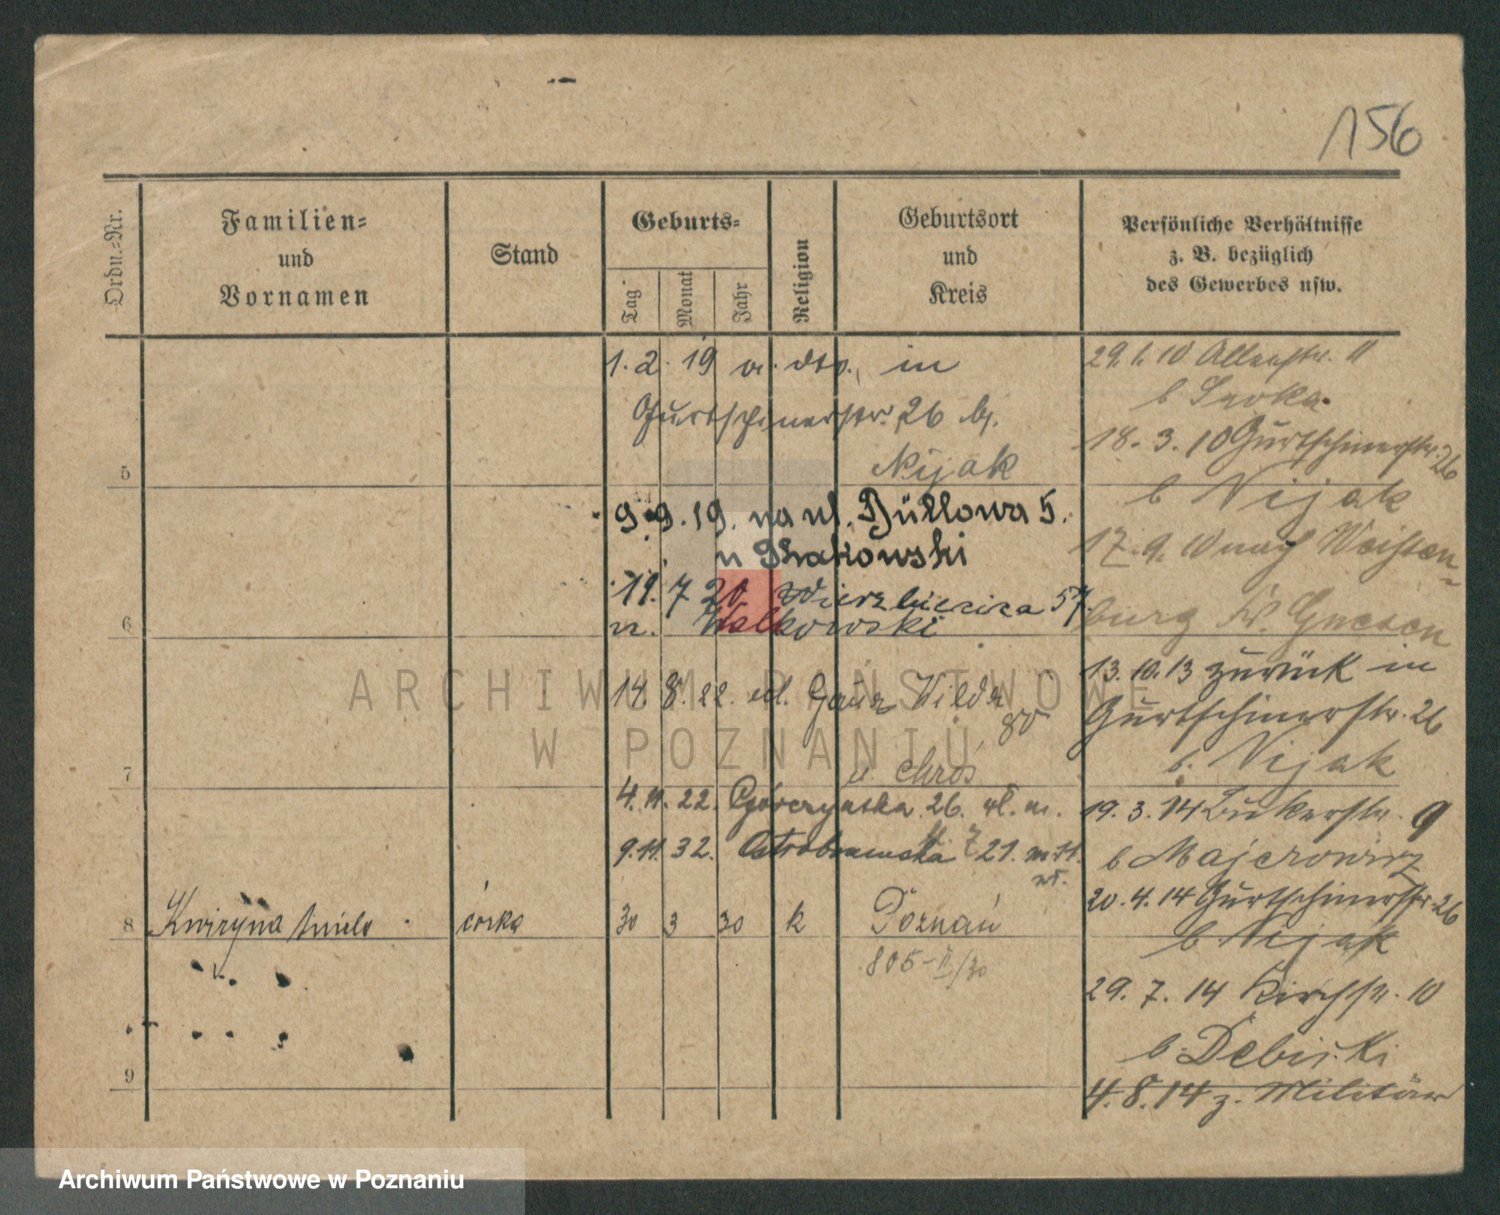 156
Ordn.-Nr.
Familien-
und
Vornamen
Stand
Geburts-
Tag
Monat
Jahr
Religion
Geburtsort
und
Kreis
Persönliche Verhältnisse
z. B. bezüglich
des Gewerbes usw.
1. 2. 19 v. dto., in
Gurtschinerstr. 26 b.
Nijak
5
9. 9. 19. na ul. Büllowa 5.
u
11. 7 20 Wierzbięcice 57
u. Walkowski
6
14. 8. 22. Wilda
80
u. Chros
7
4. 11. 22. Górczyńska 26. wł. m.
9. 11. 32. Ostrobramska 21. m 11.
wł.
8
Kwiryna córka 30 3 30 k Poznań
805-II/30
9
29. 1. 10 Allerstr. 11
b
18. 3. 10 Gurtschinerstr. 26
b Nijak
17. 9. 10 nach
burg Kr. Gnesen
13. 10. 13 zurück in
Gurtschinerstr. 26
b. Nijak
19. 3. 14 Bukerstr. 9
b Majerowicz
20. 4. 14 Gurtschinerstr. 26
b. Nijak
29. 7. 14 Kirchstr. 10
b. Debicki
4. 8. 14 z. Militär
ARCHIWUM PAŃSTWOWE
W POZNANIU
Archiwum Państwowe w Poznaniu